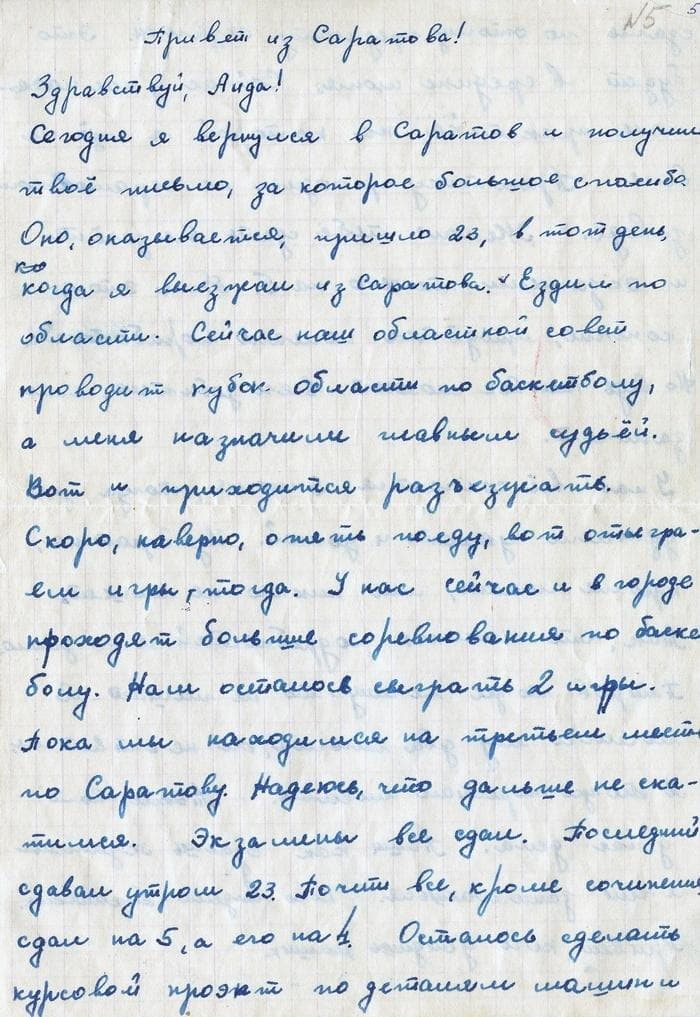 N5
5
Привет из Саратова!
Здравствуй, Аида!
Сегодня я вернулся в Саратов и получил
твоё письмо, за которое большое спасибо.
Оно, оказывается, пришло 23, в тот день,
когда я выезжал из Саратова. Ездил по
области. Сейчас наш областной совет
проводит кубок области по баскетболу,
а меня назначили главным судьёй.
Вот и приходится разъезжать.
Скоро, наверно, опять поеду, вот отыгра-
ем игры, тогда. У нас сейчас и в городе
проходят большие соревнования по баске
болу. Нам осталось сыграть 2 игры.
Пока мы находимся на третьем месте
по Саратову. Надеюсь, что дальше не ска-
тимся. Экзамены все сдал. Последний
сдавал утром 23. Почти все, кроме сочинения
сдал на 5, а его на 4. Осталось сделать
курсовой проэкт по деталям машин и